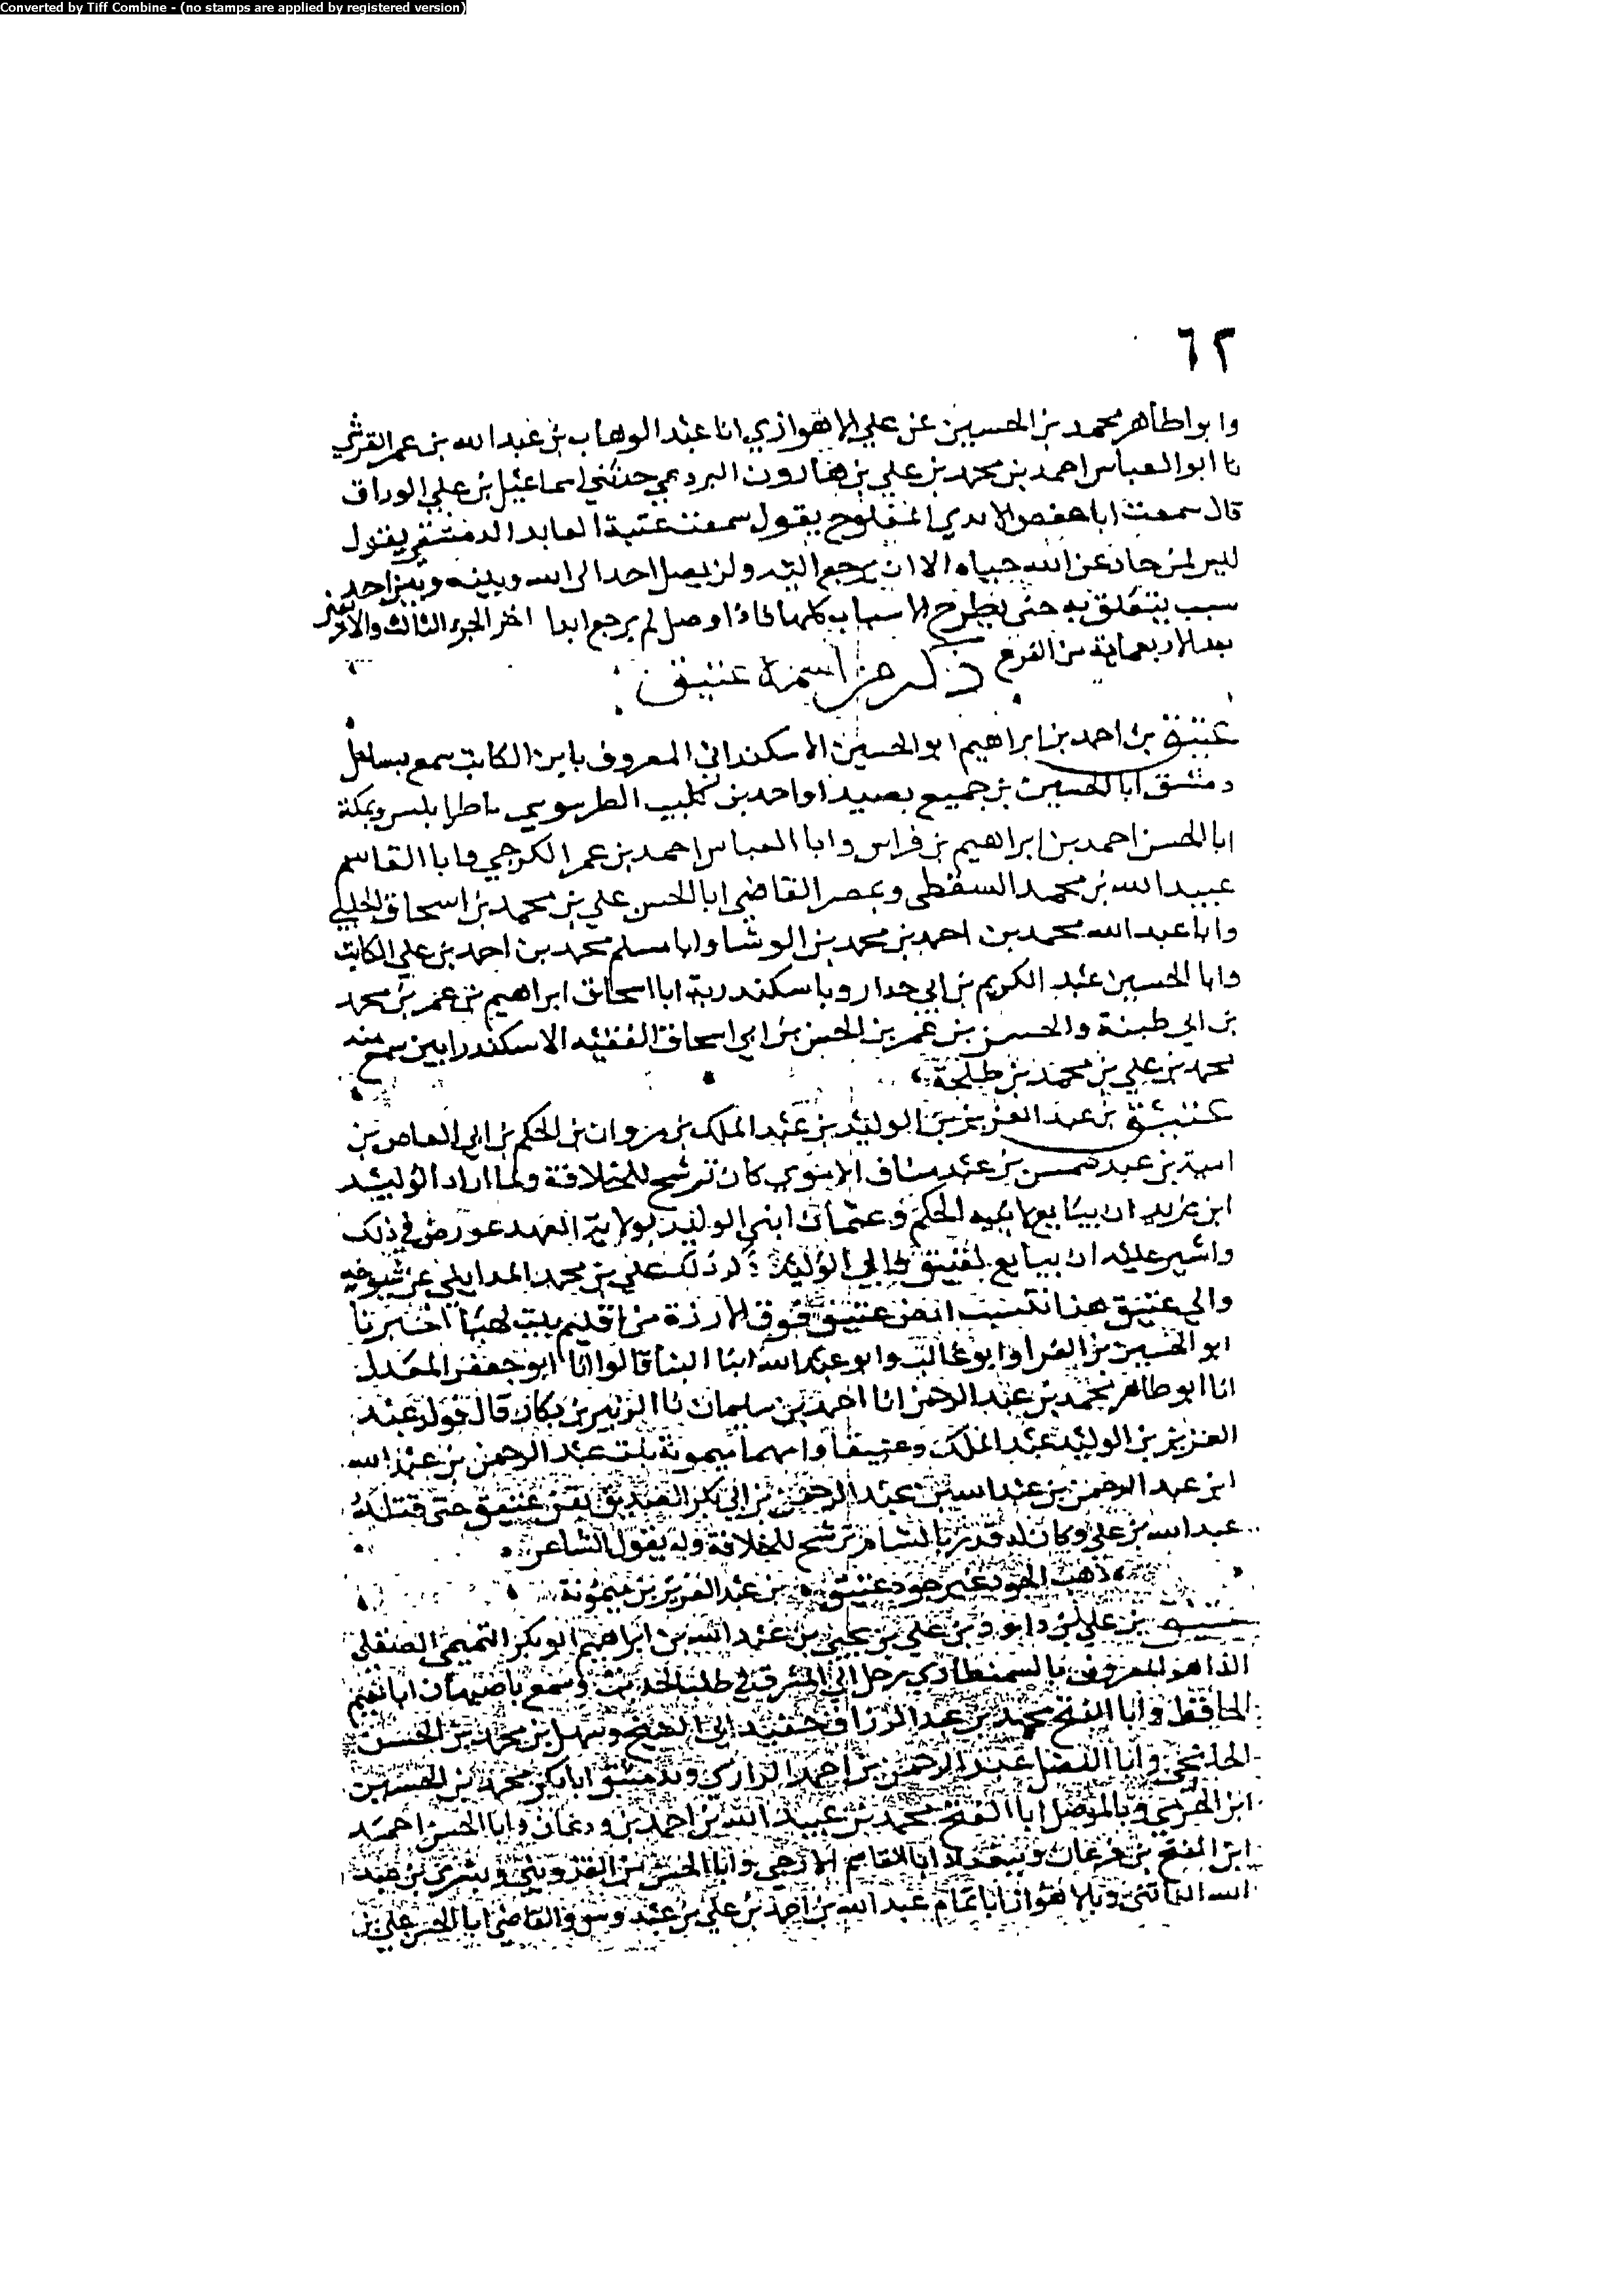 Converted by Tiff Combine - (no stamps are applied by registered version)
٦٢
وابوا طاهر محمد بن الحسين عن علي الاهوازي انا عبد الوهاب بن عبد الله بن عمر القرشي
نا ابو العباس احمد بن محمد بن علي بن هارون البردعي حدثني اسماعيل بن علي الوراق
قال سمعت ابا حفص المفلوج يقول سمعت عتبة العابد الدمشقي يقول
ليس لمن حاد عن الله حياه الا ان يرجع اليه ولن يصل احد الى الله وبينه وبين احد
سبب يتعلق به حتى يطرح الاسباب كلها فاذا وصل لم يرجع ابدا اخر الجزء الثالث والاربعين
بعد الاربعماية من الفرع ذكر من اسمه عتيق
عتيق بن احمد بن ابراهيم ابو الحسين الاسكندراني المعروف بابن الكاتب سمع بساحل
دمشق ابا الحسين بن جميع بصيدا واحمد بن كليب الطرسوسي باطرابلس وبمكة
ابا الحسن احمد بن ابراهيم بن فراس وابا العباس احمد بن عمر الكرجي وابا القاسم
عبيد الله بن محمد السقطي وبمصر القاضي ابا الحسن علي بن محمد بن اسحاق الحلبي
وابا عبد الله محمد بن احمد بن محمد بن الوشا وابا مسلم محمد بن احمد بن علي الكاتب
وابا الحسين عبد الكريم بن ابي جدار وباسكندرية ابا اسحاق ابراهيم بن عمر بن محمد
بن ابي طيبة والحسن بن عمر بن الحسن بن ابي اسحاق الفقيه الاسكندرانيين سمع منه
محمد بن علي بن محمد بن طلحة
عتيق بن عبد العزيز بن الوليد بن عبد الملك بن مروان بن الحكم بن ابي العاص بن
امية بن عبد شمس بن عبد مناف الاموي كان ترشح للخلافة ولما اراد الوليد
ابن يزيد ان يبايع لابنيه الحكم وعثمان ابني الوليد بولاية العهد عورض في ذلك
واشير عليه ان يبايع لعتيق فابى الوليد ذكر ذلك علي بن محمد المدايني عن شيوخه
والى عتيق هذا تنسب ارض عتيق فوق الارزة من اقليم بيت لهيا اخبرنا
ابو الحسين بن الفرا وابو غالب وابو عبد الله ابنا البنا قالوا انا ابو جعفر المعدل
انا ابو طاهر محمد بن عبد الرحمن انا احمد بن سليمان نا الزبير بن بكار قال فولد عبد
العزيز بن الوليد عبد الملك وعتيقا وامهما ميمونة بنت عبد الرحمن بن عبد الله
ابن عبد الرحمن بن عبد الله بن عبد الرحمن بن ابي بكر الصديق بقى عتيق حتى قتله
عبد الله بن علي وكان له قدر بالشام ترشح للخلافة وله يقول الشاعر
ذهب الجود غير جود عتيق بن عبد العزيز بن ميمونة
عتيق بن علي بن داوود بن علي بن يحيى بن عبد الله بن ابراهيم ابو بكر التميمي الصقلي
الزاهد المعروف بالسمنطاري رحل الى المشرق في طلب الحديث وسمع باصبهان ابا نعيم
الحافظ وابا الفتح محمد بن عبد الرزاق حفيد ابي الشيخ وسهل بن محمد بن الحسن
وابا الفضل عبد الرحمن بن احمد الرازي وبدمشق ابا بكر محمد بن الحسين
ابن الحرمي وبالموصل ابا الفتح محمد بن عبيد الله بن احمد بن ودعان وابا الحسن احمد
ابن الفتح بن فرغان وببغداد ابا القاسم الازجي وابا الحسن بن القزويني وبشرى بن عبد
الله الفاتني وبالاهواز ابا تمام عبد الله بن احمد بن علي بن عبدوس والقاضي ابا الحسن علي بن